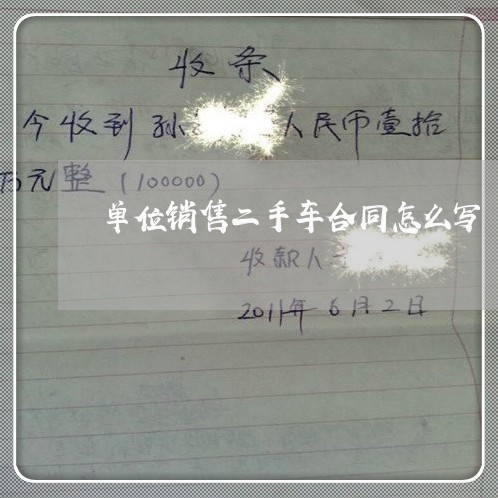 收条
今收到孙 人民币壹拾
万元整（100000）
单位销售二手车合同怎么写
收款人
2011年6月2日